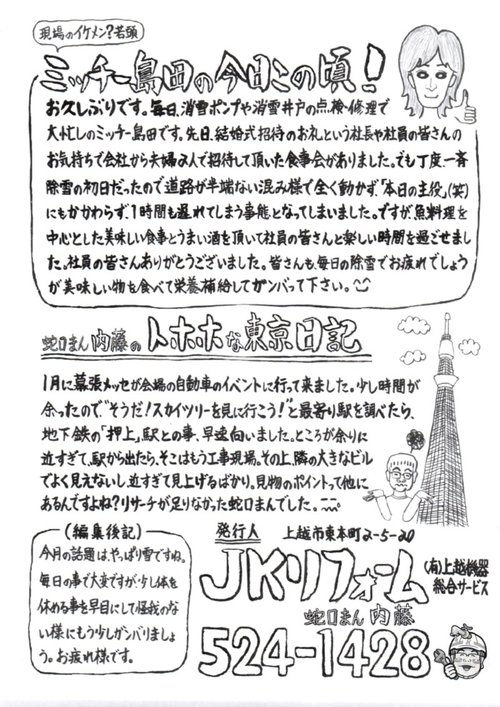 現場のイケメン?若頭
ミッチー島田の今日この頃!
お久しぶりです。毎日、消雪ポンプや消雪井戸の点検・修理で
大忙しのミッチー島田です。先日、結婚式招待のお礼という社長や社員の皆さんの
お気持ちで会社から夫婦2人で招待して頂いた食事会がありました。でも丁度、一斉
除雪の初日だったので道路が半端ない混み様で全く動かず、「本日の主役」(笑)
にもかかわらず、1時間も遅れてしまう事態となってしまいました。ですが、魚料理を
中心とした美味しい食事とうまい酒を頂いて社員の皆さんと楽しい時間を過ごせまし
た。社員の皆さんありがとうございました。皆さんも、毎日の除雪でお疲れでしょう
が美味しい物を食べて栄養補給してガンバって下さい。
蛇口まん内藤のトホホな東京日記
1月に幕張メッセが会場の自動車のイベントに行って来ました。少し時間が
余ったので“そうだ!スカイツリーを見に行こう!”と最寄り駅を調べたら、
地下鉄の「押上」駅との事、早速向いました。ところが余りに
近すぎて、駅から出たら、そこはもう工事現場。その上、隣の大きなビル
でよく見えないし、近すぎて見上げるばかり。見物のポイントって他に
あるんですよね?リサーチが足りなかった蛇口まんでした。
(編集後記)
今月の話題は、やっぱり雪ですね。
毎日の事で大変ですが、少し体を
休める事を早目にして怪我のな
い様にもう少しガンバりましょ
う。お疲れ様です。
発行人 上越市東本町2-5-20
JKリフォーム
(有)上越機器
総合サービス
蛇口まん 内藤
524-1428